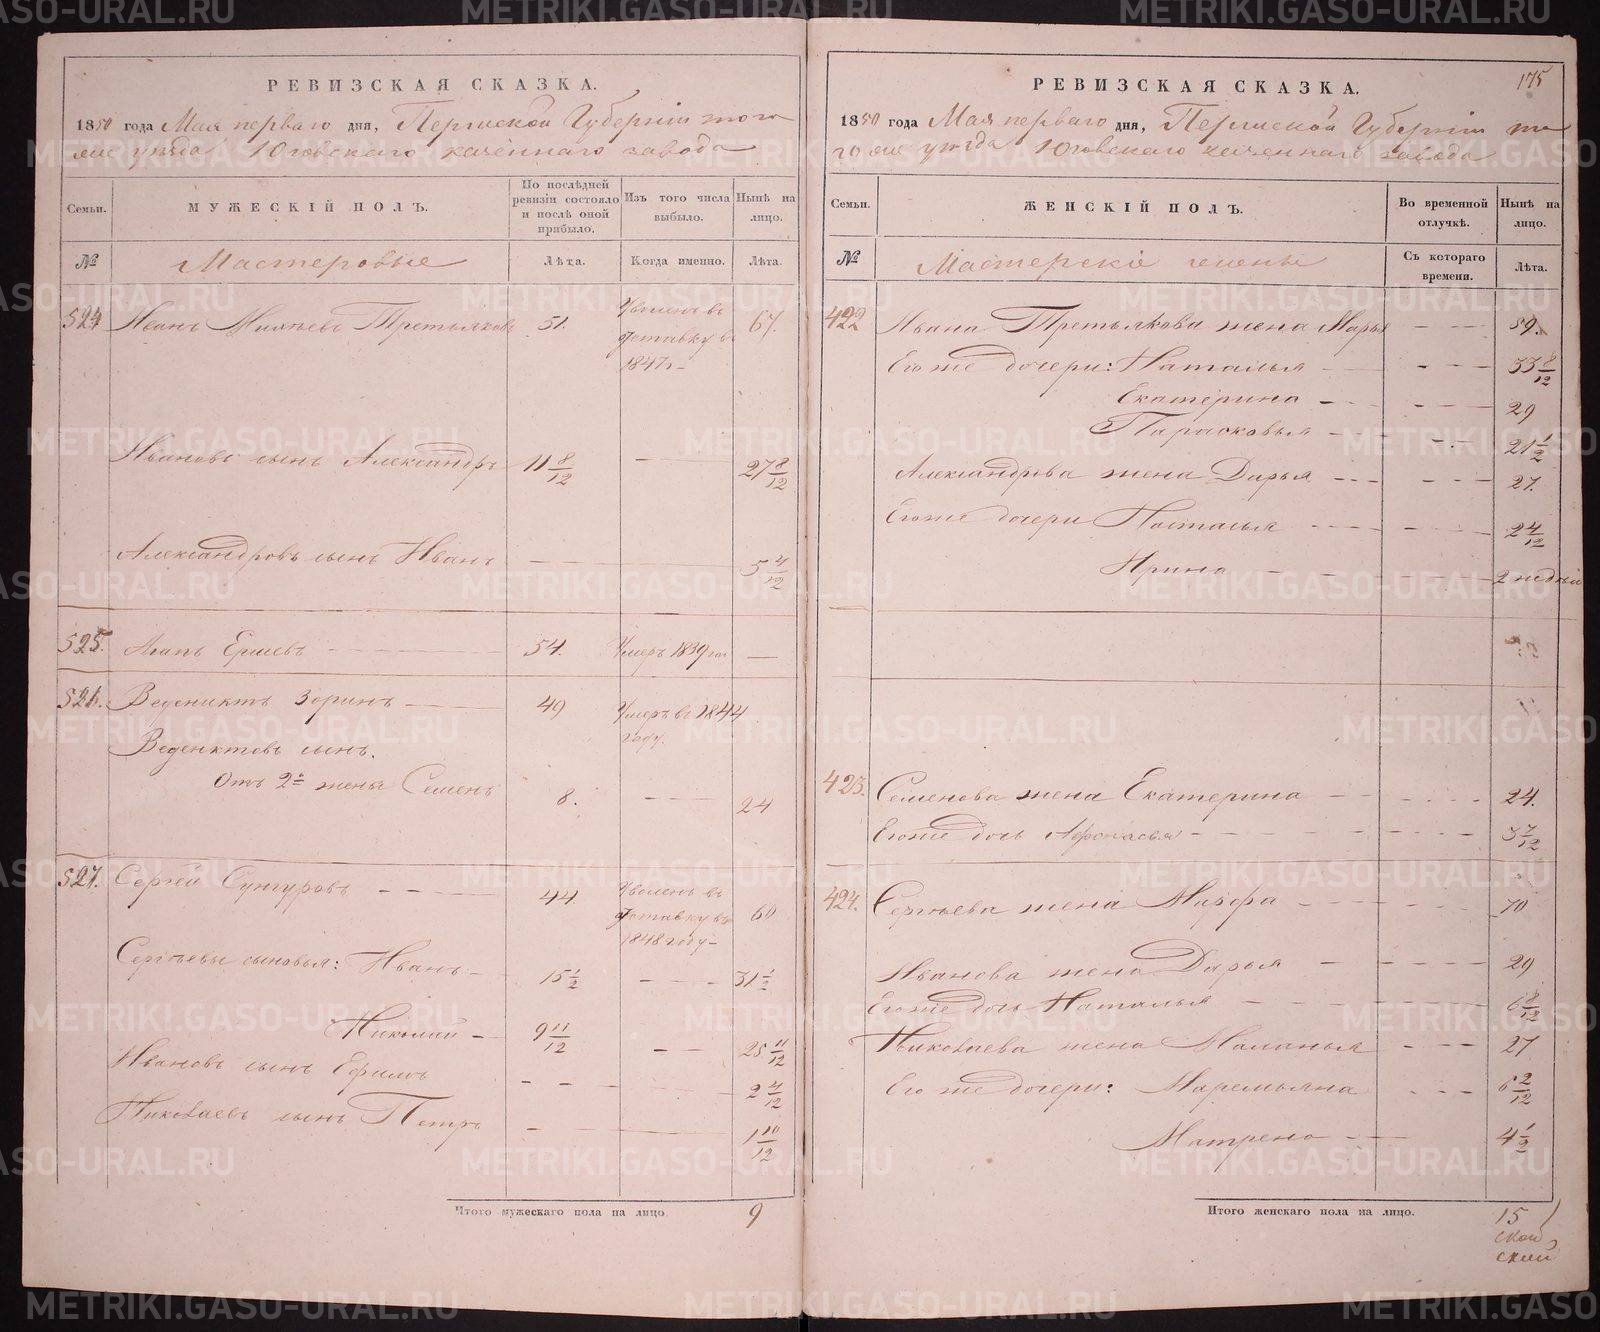 РЕВИЗСКАЯ СКАЗКА.
1850 года Мая перваго дня, Пермской Губернiи того
же уѣзда Юговскаго казеннаго завода
Семьи.
МУЖЕСКIЙ ПОЛЪ.
По послѣдней ревизiи состояло и послѣ оной прибыло.
Изъ того числа выбыло.
Нынѣ на лицо.
№
Мастеровые
Лѣта.
Когда именно.
Лѣта.
524 Иванъ Третьяковъ 51. Уволенъ в 67.
отставку в
1847г
Ивановъ сынъ Александръ 11 8/12 — — — 27 8/12
Александровъ сынъ Иванъ — — 5 4/12
525. Ершевъ 54. Умеръ 1839 —
526. Веденихтъ Зоринъ 49 Умеръ въ 1844
году.
Веденихтовъ сынъ.
Отъ 2й жены Семенъ 8. — — 24
527. Сергей Сунгуровъ 44 Уволенъ въ 60
отставку въ
1848 году
Сергѣевы сыновья: Иванъ 15 1/2 — — 31 1/2
Николай 9 11/12 — — 25 11/12
Ивановъ сынъ Ефимъ — — 2 4/12
Николаевъ сынъ Петръ — — 1 10/12
Итого мужескаго пола на лицо. 9
175
РЕВИЗСКАЯ СКАЗКА.
1850 года Мая перваго дня, Пермской Губернiи то
го же уѣзда Юговскаго казеннаго завода
Семьи.
ЖЕНСКIЙ ПОЛЪ.
Во временной отлучкѣ.
Нынѣ на лицо.
№
Мастерскiе жены
Съ котораго времени.
Лѣта.
422 Ивана Третьякова жена Марья — — — 59.
Его же дочери: Наталья — — — 33 8/12
Екатерина — — — 29
Парасковья — — — 21 1/2
Александрова жена Дарья — — — 27.
Его же дочери Настасья — — — 2 4/12
Ирина — — — 2 недѣли
423. Семенова жена Екатерина — — — 24.
Его же дочь Афонасья — — — 3 7/12
424. Сергѣева жена Марфа — — — 70
Иванова жена Дарья — — — 29
Его же дочь Наталья — — — 6 8/12
Николаева жена Маланья — — — 27
Его же дочери: Маремьяна — — — 6 2/12
Матрена — — — 4 1/2
Итого женскаго пола на лицо. 15
METRIKI.GASO-URAL.RU